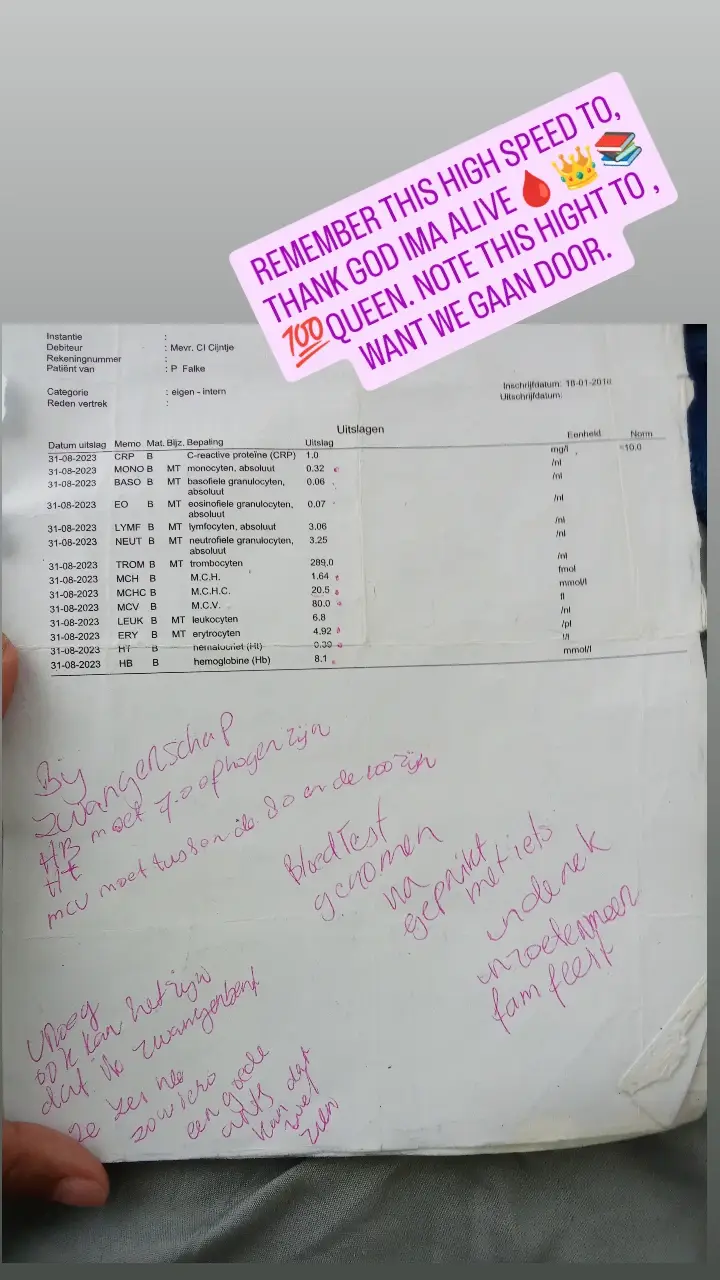 REMEMBER THIS HIGH SPEED TO,
THANK GOD IMA ALIVE 🩸👑📚
💯QUEEN. NOTE THIS HIGHT TO ,
WANT WE GAAN DOOR.
Instantie :
Debiteur : Mevr. CI Cijntje
Rekeningnummer :
Patiënt van : P Falke
Categorie : eigen - intern
Reden vertrek :
Inschrijfdatum: 18-01-2018
Uitschrijfdatum:
Uitslagen
Datum uitslag Memo Mat. Bijz. Bepaling Uitslag Eenheid Norm
31-08-2023 CRP B C-reactive proteïne (CRP) 1.0 mg/l <10.0
31-08-2023 MONO B MT monocyten, absoluut 0.32 /nl
31-08-2023 BASO B MT basofiele granulocyten, 0.06 /nl
absoluut
31-08-2023 EO B MT eosinofiele granulocyten, 0.07 /nl
absoluut
31-08-2023 LYMF B MT lymfocyten, absoluut 3.06 /nl
31-08-2023 NEUT B MT neutrofiele granulocyten, 3.25 /nl
absoluut
31-08-2023 TROM B MT trombocyten 289.0 /nl
31-08-2023 MCH B M.C.H. 1.64 fmol
31-08-2023 MCHC B M.C.H.C. 20.5 mmol/l
31-08-2023 MCV B M.C.V. 80.0 fl
31-08-2023 LEUK B MT leukocyten 6.8 /nl
31-08-2023 ERY B MT erytrocyten 4.92 /pl
31-08-2023 HT B hematocriet (Ht) 0.39 l/l
31-08-2023 HB B hemoglobine (Hb) 8.1 mmol/l
Bij
zwangerschap
HB moet 7.0 of hoger zijn
Ht
mcv moet tussen de 80 en de 100 zijn
Bloedtest
genomen
na
geprikt
met iets
in de nek
in zoetermeer
fam feest
vroeg
ook kan het zijn
dat ik zwanger bent
ze zei nee
zowiero
een goede
arts
kan dat
wel
zien